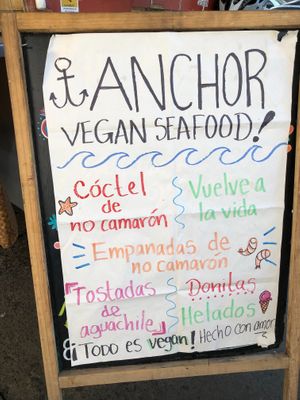 ANCHOR
VEGAN SEAFOOD!
Cóctel
de
no camarón
Vuelve a
la vida
Empanadas de
no camarón
Tostadas
de
aguachile
Donitas
Helados
¡TODO es vegan! Hecho con amor